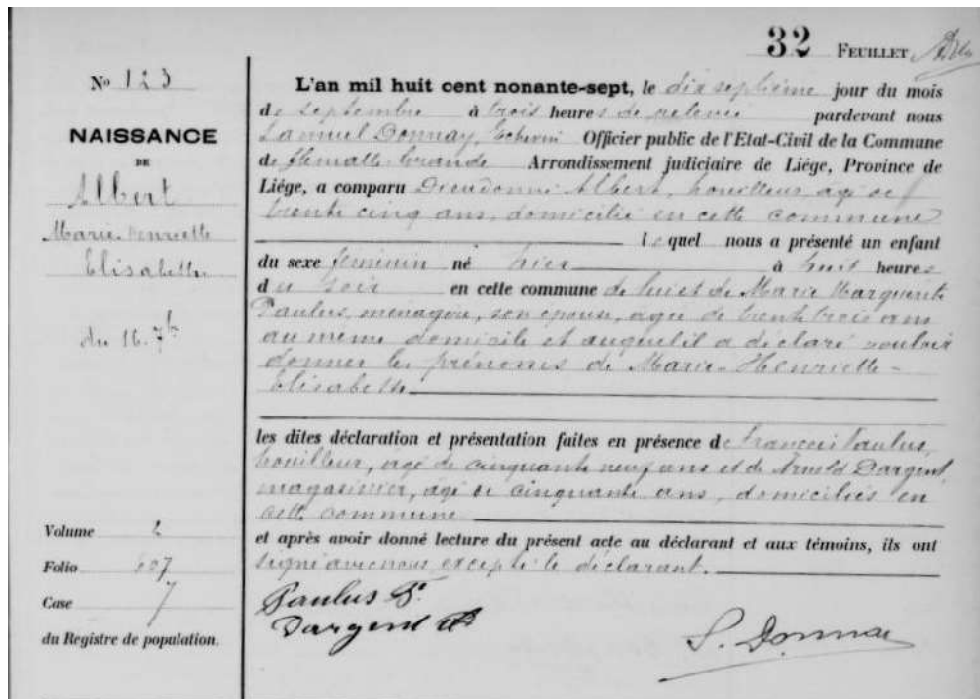 32 FEUILLET
N° 123
NAISSANCE
DE
Albert
Marie-Henriette
Elisabeth
du 16. 7b
Volume 2
Folio 607
Case 7
du Registre de population.
L'an mil huit cent nonante-sept, le dix septième jour du mois
de septembre à trois heures de relevée pardevant nous
Samuel Donnay, Echevin Officier public de l'Etat-Civil de la Commune
de Jemelle Grande Arrondissement judiciaire de Liége, Province de
Liége, a comparu Dieudonné Albert, houilleur, agé de
trente cinq ans, domicilié en cette commune
lequel nous a présenté un enfant
du sexe féminin né hier à huit heures
du soir en cette commune de lui et de Marie Marguerite
Paulus, ménagère, son épouse, agée de trente trois ans
au même domicile et auquel il a déclaré vouloir
donner les prénoms de Marie-Henriette-
Elisabeth
les dites déclaration et présentation faites en présence de François Paulus,
houilleur, agé de cinquante neuf ans et de Arnold Dargent,
magasinier, agé de cinquante ans, domiciliés en
cette commune
et après avoir donné lecture du présent acte au déclarant et aux témoins, ils ont
signé avec nous excepté le déclarant.
Paulus F.
Dargent A
S. Donnay